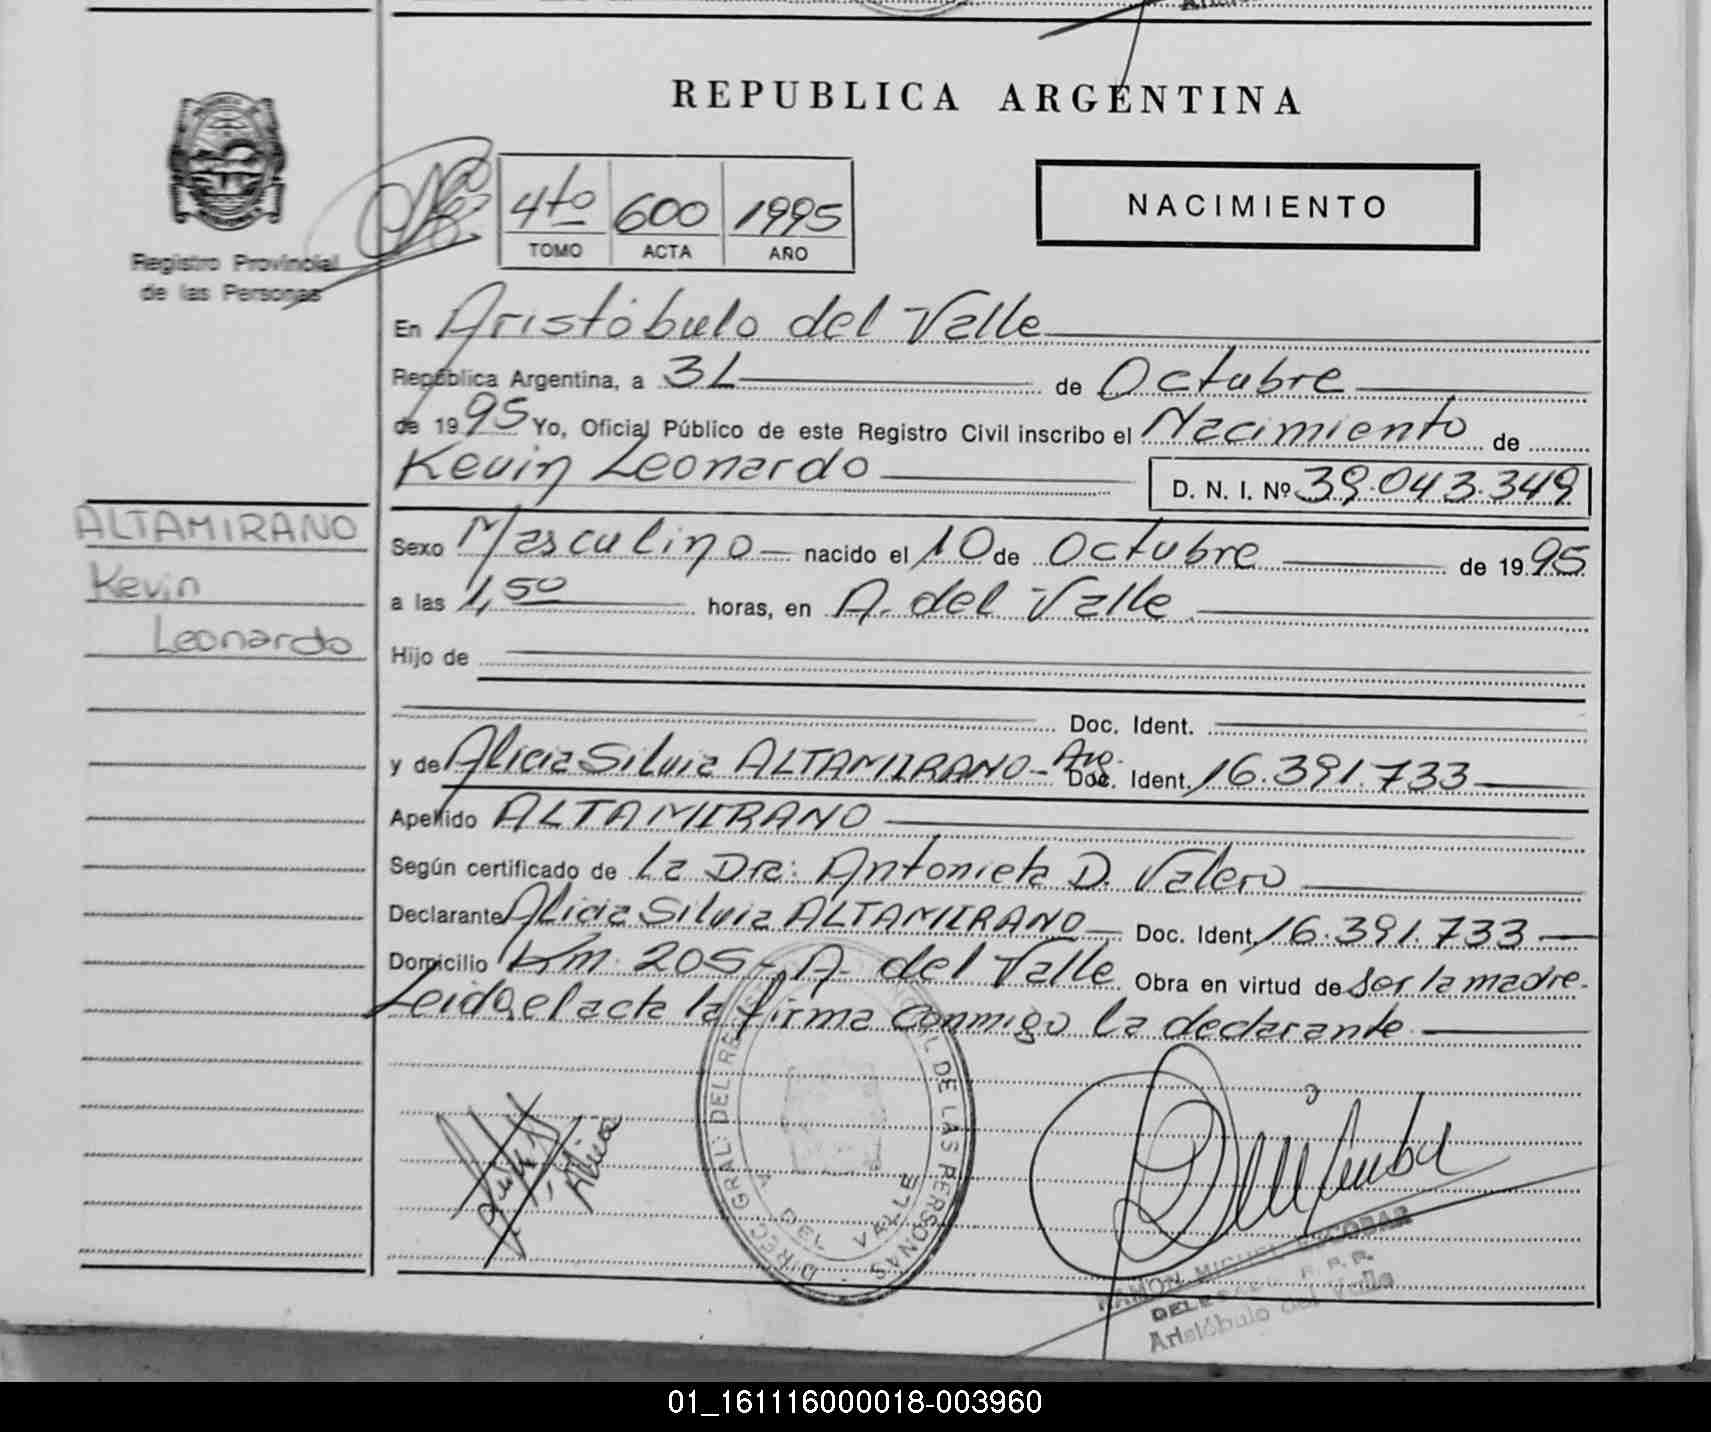 REPUBLICA ARGENTINA
NACIMIENTO
4to 600 1995
TOMO ACTA AÑO
Registro Provincial
de las Personas
En Aristóbulo del Valle
República Argentina, a 31 de Octubre
de 1995 Yo, Oficial Público de este Registro Civil inscribo el Nacimiento de
Kevin Leonardo D. N. I. Nº 39.043.349
ALTAMIRANO
Kevin
Leonardo
Sexo Masculino nacido el 10 de Octubre de 1995
a las 1,50 horas, en A. del Valle
Hijo de
Doc. Ident.
y de Alicia Silvia ALTAMIRANO - Arg. Doc. Ident. 16.391.733
Apellido ALTAMIRANO
Según certificado de La Dra: Antonieta D. Valero
Declarante Alicia Silvia ALTAMIRANO Doc. Ident. 16.391.733
Domicilio Km. 205 - A. del Valle Obra en virtud de ser la madre.
Leida el acta la firma conmigo la declarante
DIREC. GRAL. DEL REG. CIVIL DE LAS PERSONAS
A. DEL VALLE
RAMON MIGUEL ESCOBAR
Aristóbulo del Valle
01_161116000018-003960